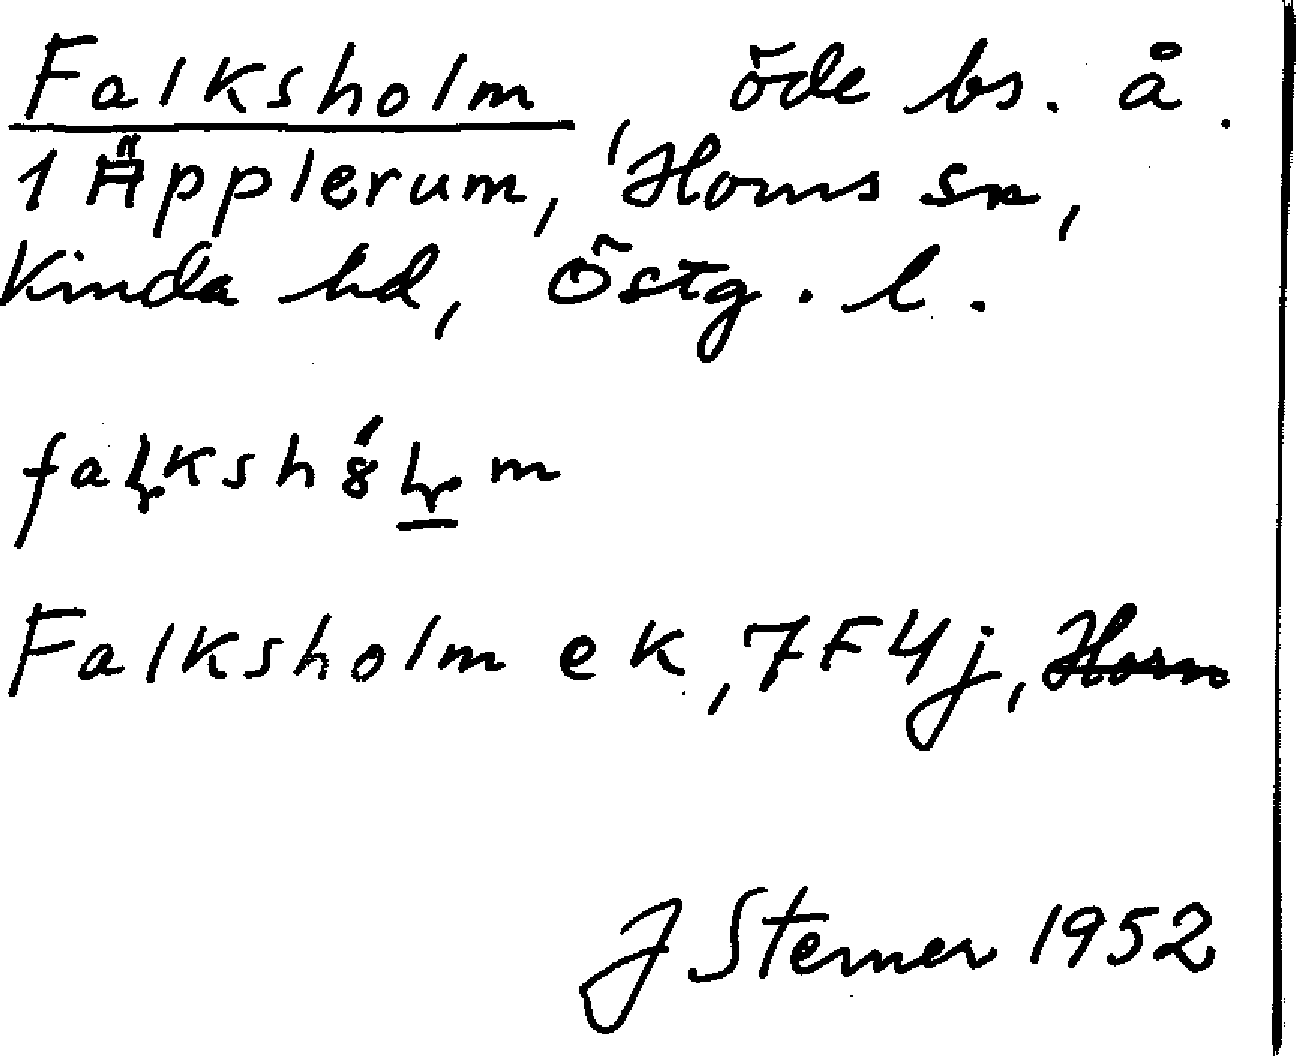 Falksholm, öde bs. å
1 Äpplerum, Horns sn,
Kinda hd, Östg. l.
Falksholm ek, 7F4j, Horn
J Sterner 1952